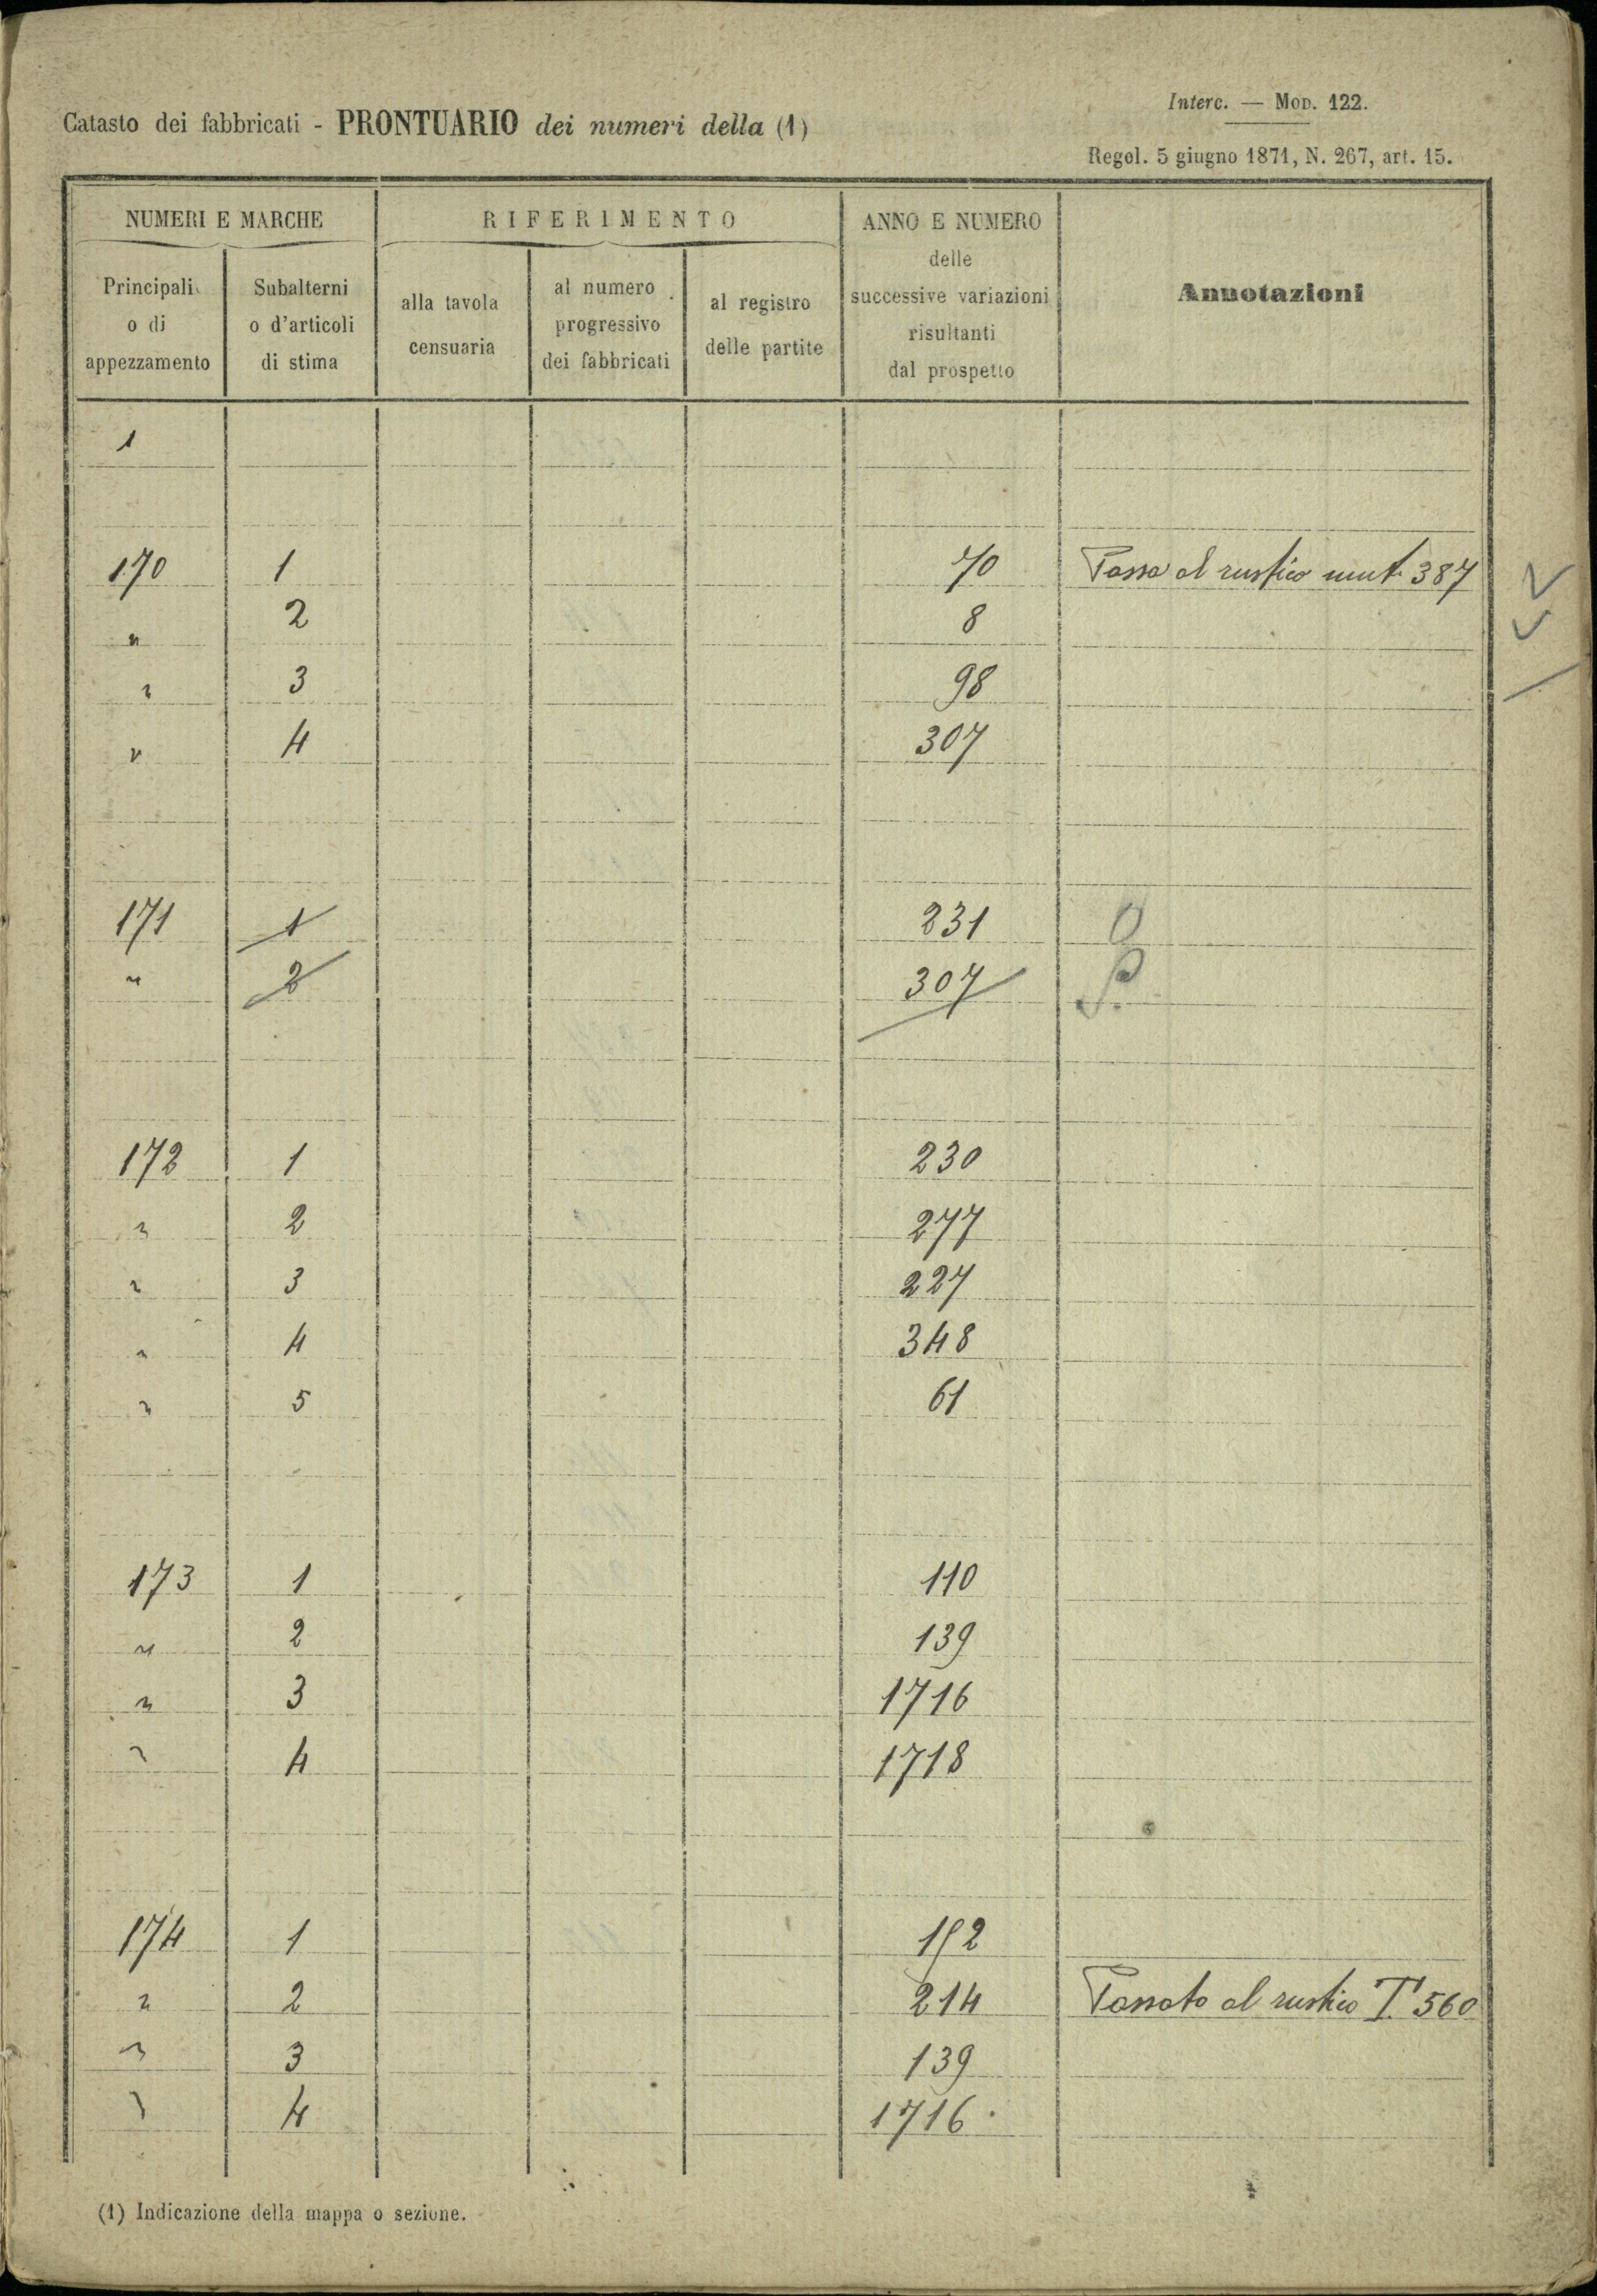 Interc. — Mod. 122.
Catasto dei fabbricati - PRONTUARIO dei numeri della (1)
Regol. 5 giugno 1871, N. 267, art. 15.
NUMERI E MARCHE RIFERIMENTO ANNO E NUMERO delle successive variazioni risultanti dal prospetto Annotazioni
Principali o di appezzamento Subalterni o d'articoli di stima alla tavola censuaria al numero progressivo dei fabbricati al registro delle partite
1
170 1 70 Passa al rustico mut. 387
" 2 8
" 3 98
" 4 307
171 1 231 O
" 2 307 P.
172 1 230
" 2 277
" 3 227
" 4 348
" 5 61
173 1 110
" 2 139
" 3 1716
" 4 1718
174 1 152
" 2 214 Passato al rustico T. 560
" 3 139
" 4 1716
(1) Indicazione della mappa o sezione.